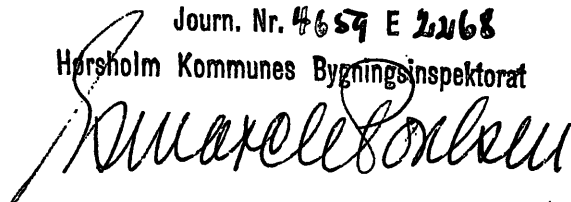 Journ. Nr. 4659 E 2268
Hørsholm Kommunes Bygningsinspektorat